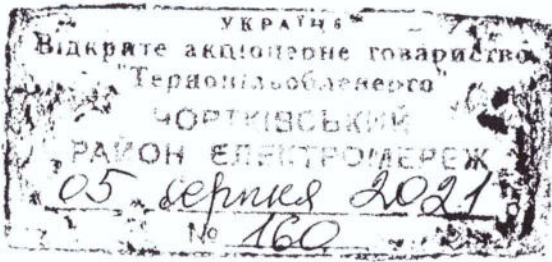 УКРАЇНА
Відкрите акціонерне товариство
"Тернопільобленерго"
ЧОРТКІВСЬКИЙ
РАЙОН ЕЛЕКТРОМЕРЕЖ
"05" серпня 2021
№ 160